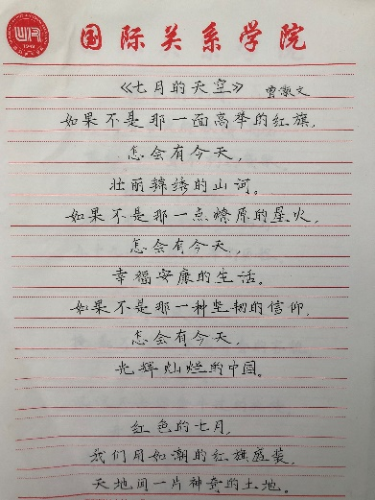 国际关系学院
《七月的天空》 曹激文
如果不是那一面高举的红旗，
怎会有今天，
壮丽锦绣的山河。
如果不是那一点燎原的星火，
怎会有今天，
幸福安康的生活。
如果不是那一种坚韧的信仰，
怎会有今天，
光辉灿烂的中国。
红色的七月，
我们用如潮的红旗盛装，
天地间一片神奇的土地。